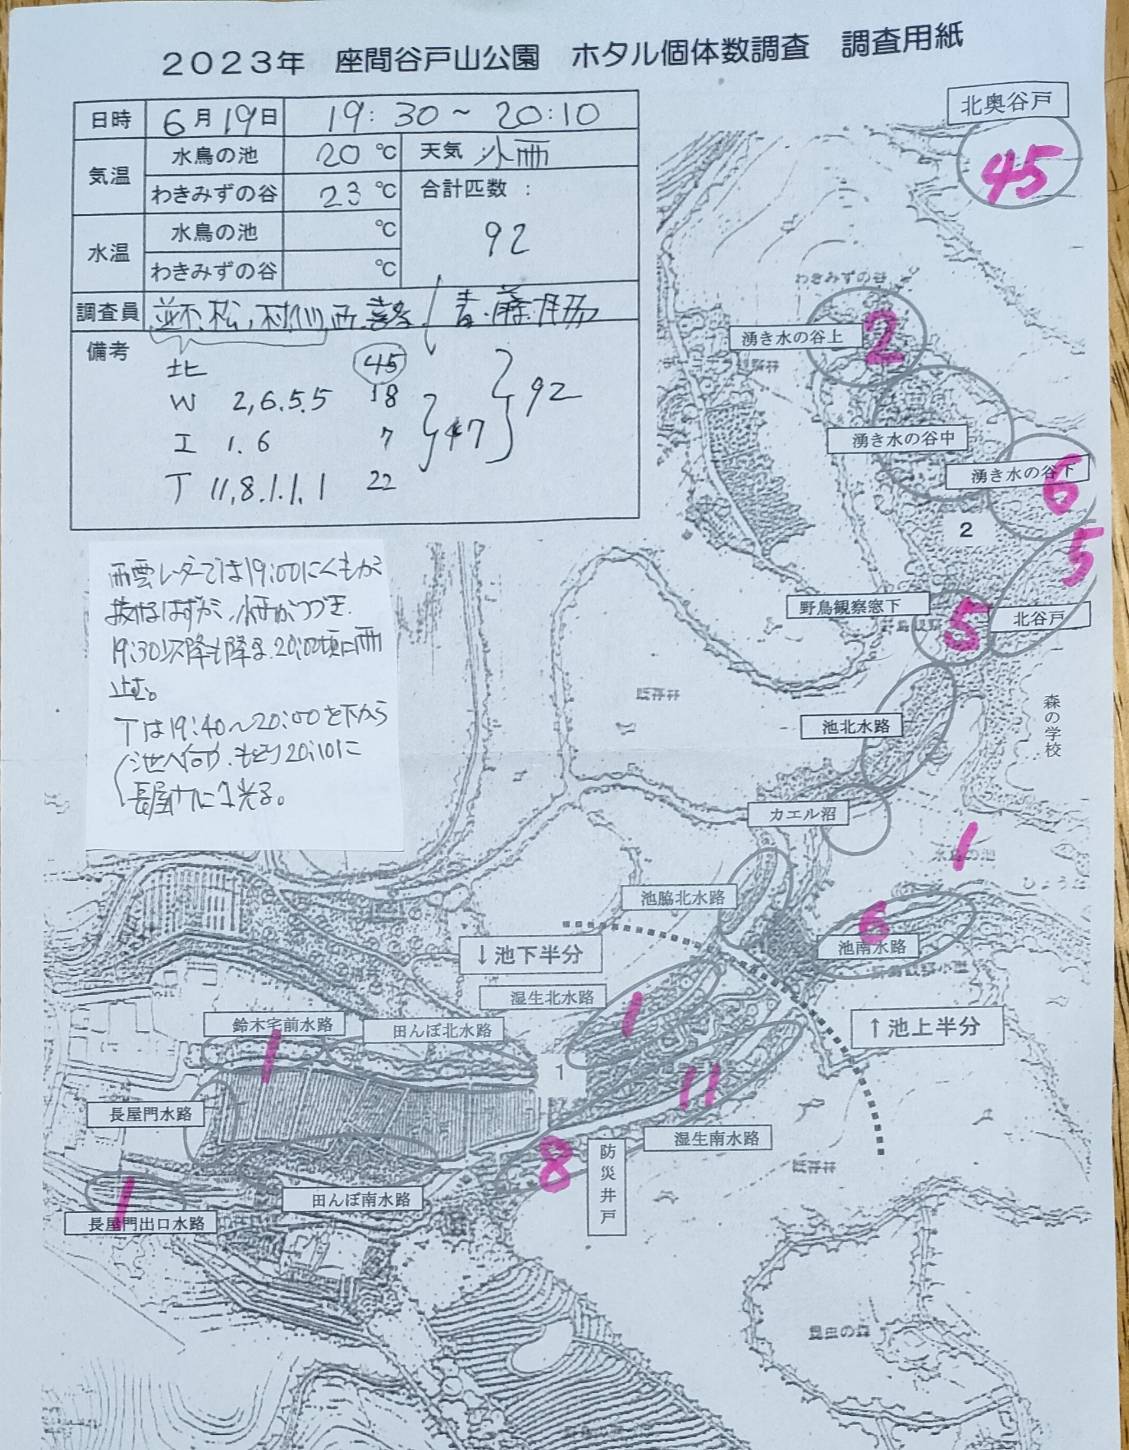 2023年 座間谷戸山公園 ホタル個体数調査 調査用紙
日時 6月19日 19:30～20:10
気温 水鳥の池 20℃ 天気 小雨
わきみずの谷 23℃ 合計匹数:
92
水温 水鳥の池 ℃
わきみずの谷 ℃
調査員
備考
北 45
W 2,6.5.5 18
I 1.6 7
T 11,8.1.1.1 22
47
92
雨雲レーダーでは19:00にくもが
抜けるはずが、小雨がつづき
19:30以降も降る.20:00頃に雨
止む。
Tは19:40～20:00を下から
池へ向い.もどり20:10に
長屋門に1光る。
北奥谷戸
45
わきみずの谷
湧き水の谷上
2
湧き水の谷中
湧き水の谷下
6
2
5
野鳥観察窓下
5
北谷戸
既存林
池北水路
森の学校
カエル沼
1
池脇北水路
6
池南水路
↓池下半分
湿生北水路
1
↑池上半分
鈴木宅前水路
1
田んぼ北水路
1
11
長屋門水路
湿生南水路
8
防災井戸
既存林
田んぼ南水路
1
長屋門出口水路
昆虫の森